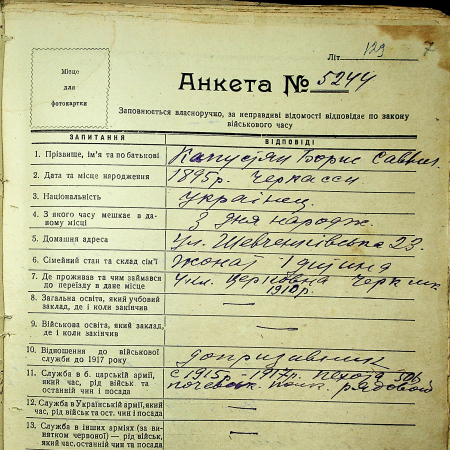 Літ. 129 7
Місце
для
фотокартки
Анкета № 5244
Заповнюється власноручно, за неправдиві відомості відповідає по закону
військового часу
ЗАПИТАННЯ ВІДПОВІДІ
1. Прізвище, ім'я та по батькові Капустян Борис Саввич
2. Дата та місце народження 1895р. Черкасси
3. Національність українец
4. З якого часу мешкає в да-
ному місці З дня народж.
5. Домашня адреса ул. Шевченківська 23
6. Сімейний стан та склад сім'ї жонат
7. Де проживав та чим займався
до переїзду в дане місце
1910р.
8. Загальна освіта, який учбовий
заклад, де і коли закінчив —
9. Військова освіта, який заклад,
де і коли закінчив —
10. Відношення до військової
служби до 1917 року допризивник
11. Служба в б. царській армії,
який час, рід військ та
останній чин і посада
с 1915р - 1917р. пехота 506
полк. рядовой
12. Служба в Українській армії, який
час, рід військ та ост. чин і посада —
13. Служба в інших арміях (за ви-
нятком червоної) — рід військ,
який час, останній чин та посада —